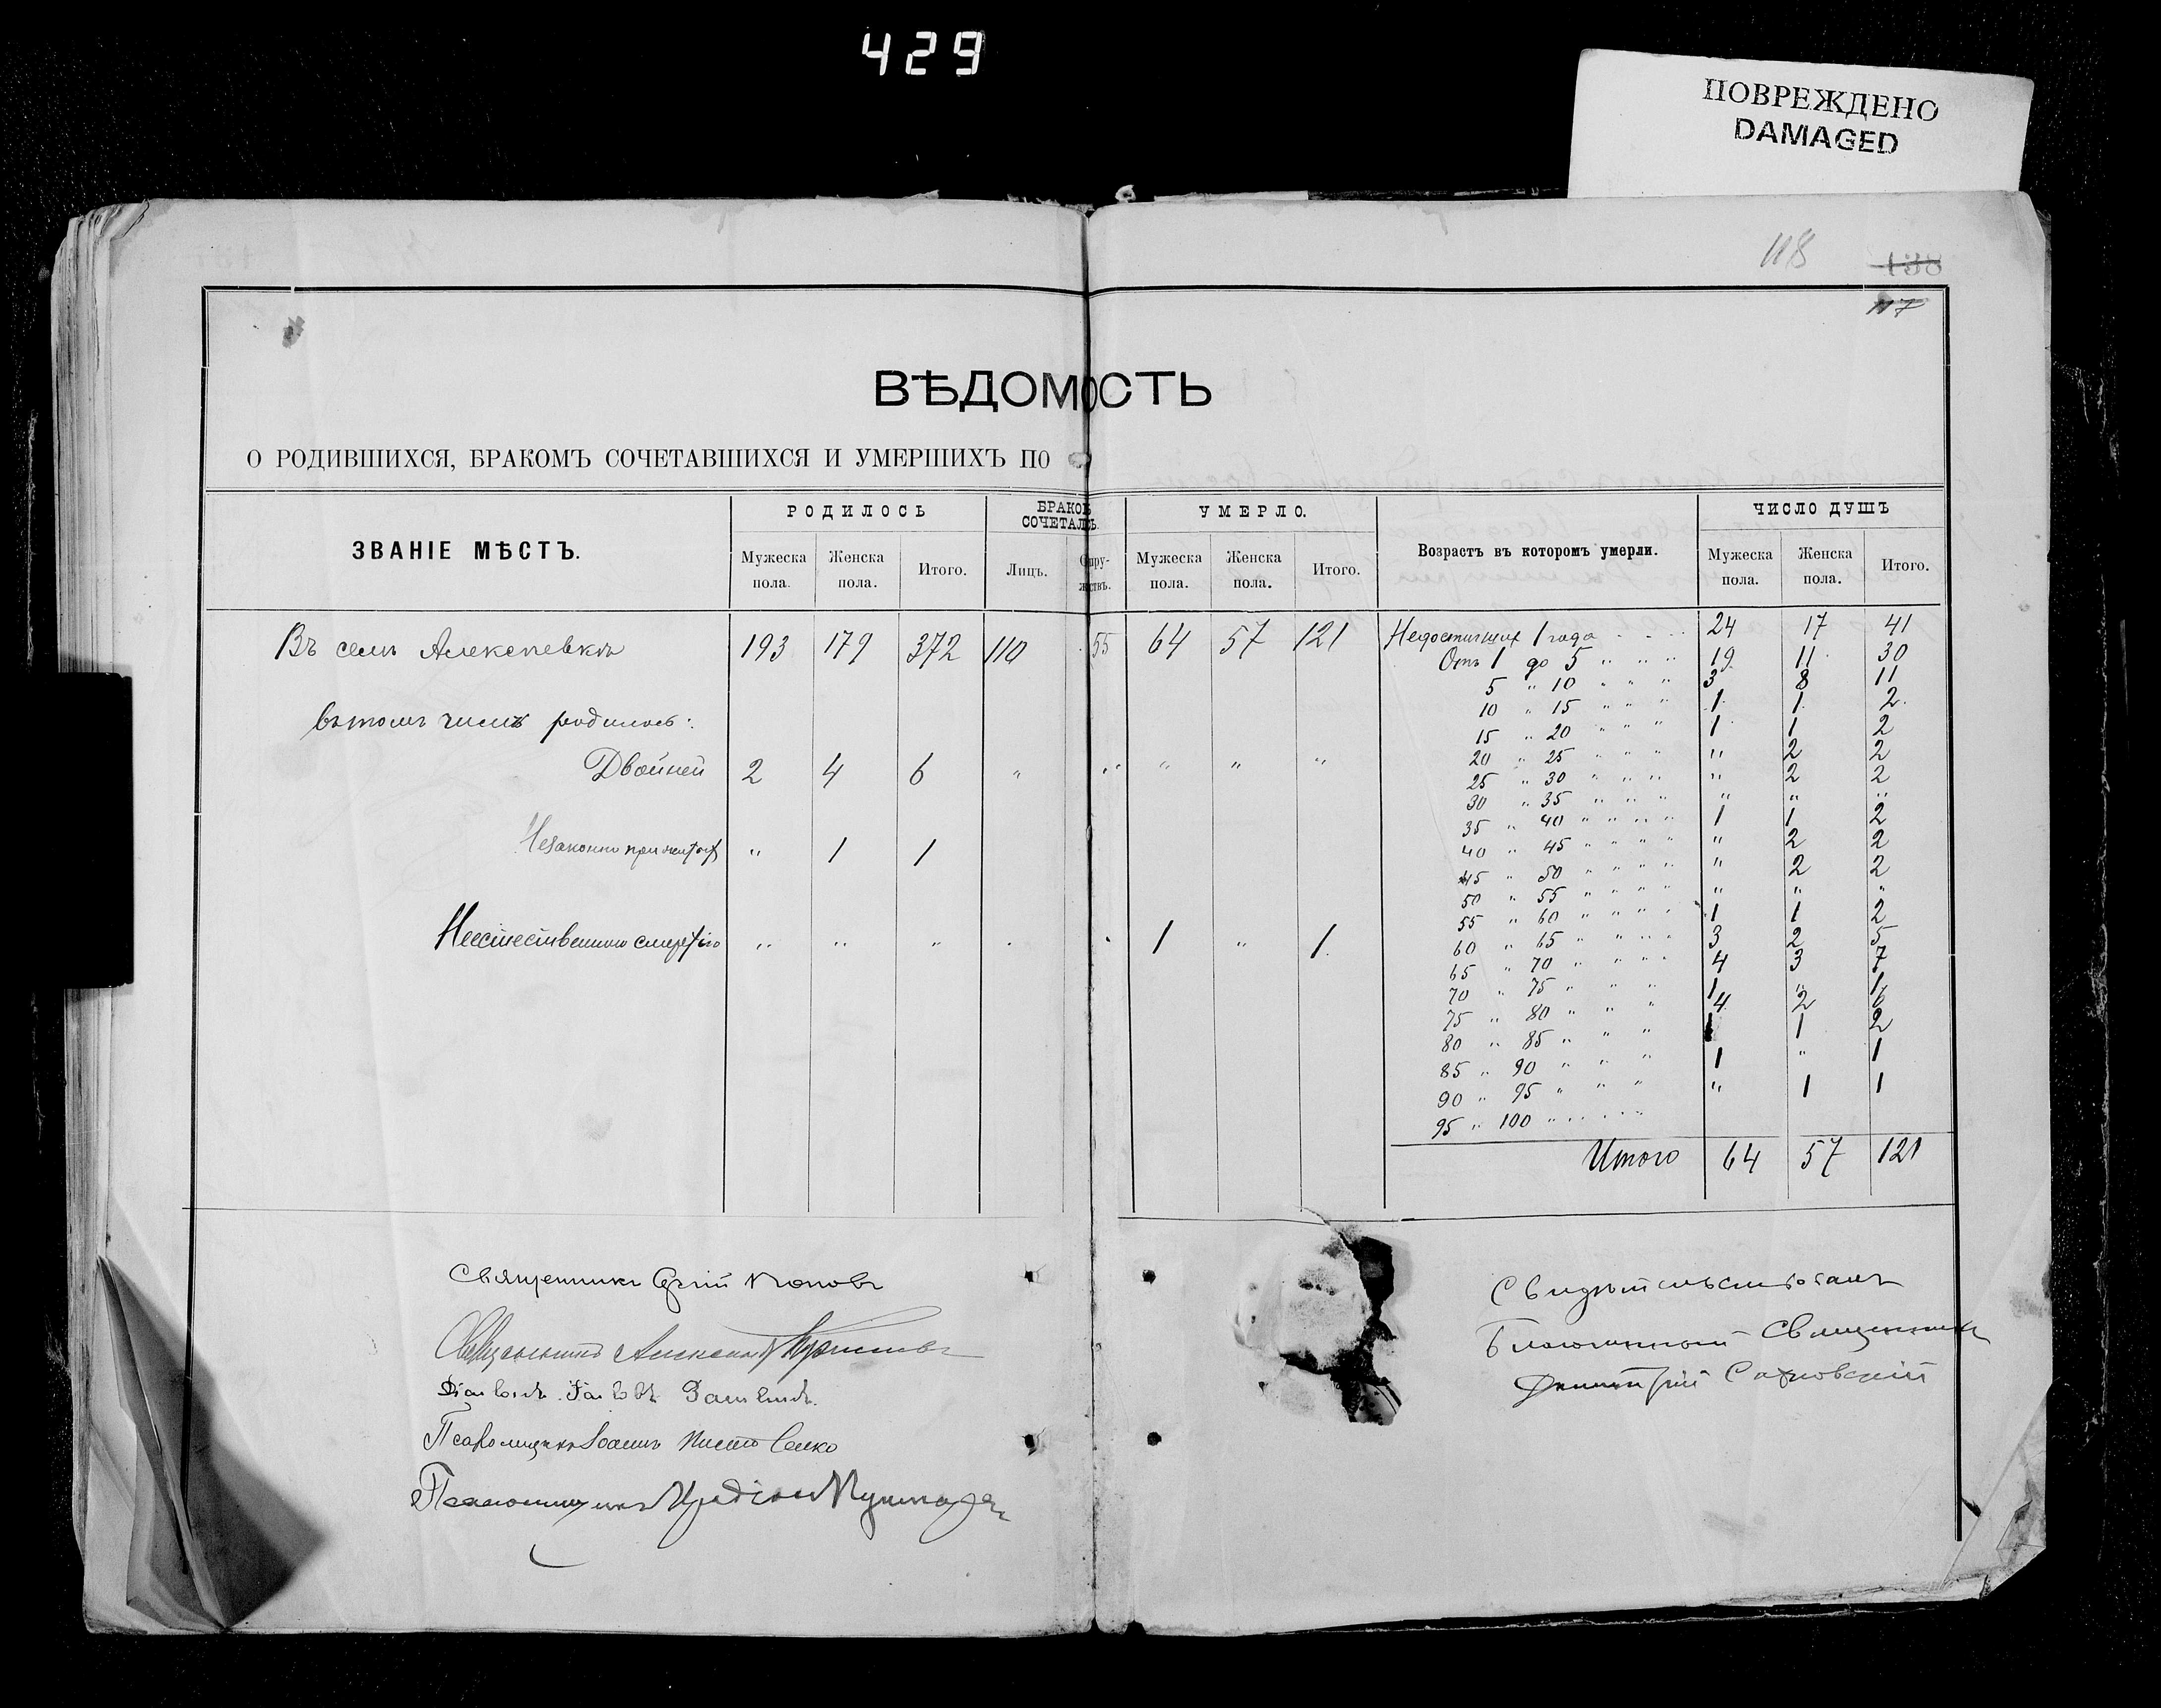 429
ПОВРЕЖДЕНО
DAMAGED
118
138
117
ВѢДОМОСТЬ
О РОДИВШИХСЯ, БРАКОМЪ СОЧЕТАВШИХСЯ И УМЕРШИХЪ ПО
ЗВАНІЕ МѢСТЪ. РОДИЛОСЬ БРАКОВЪ СОЧЕТАЛОСЬ. УМЕРЛО. Возрастъ въ которомъ умерли. ЧИСЛО ДУШЪ
Мужеска пола. Женска пола. Итого. Лицъ. Супружествъ. Мужеска пола. Женска пола. Итого. Мужеска пола. Женска пола. Итого.
Въ селѣ Алексѣевкѣ 193 179 372 110 55 64 57 121
въ томъ числѣ родилось:
Двойней 2 4 6 " " " " "
" 1 1
" " " " " 1 " 1
Недостигших 1 года 24 17 41
Отъ 1 до 5 " " " 19 11 30
5 " 10 " " " 3 8 11
10 " 15 " " " 1 1 2
15 " 20 " " " 1 1 2
20 " 25 " " " " 2 2
25 " 30 " " " " " 2 2
30 " 35 " " " " " "
35 " 40 " " " " 1 1 2
40 " 45 " " " " " 2 2
45 " 50 " " " " " 2 2
50 " 55 " " " " " " "
55 " 60 " " " " 1 1 2
60 " 65 " " " " 3 2 5
65 " 70 " " " " 4 3 7
70 " 75 " " " 1 " 1
75 " 80 " " " 4 2 6
80 " 85 " " " 1 1 2
85 " 90 " " " 1 " 1
90 " 95 " " " " 1 1
95 " 100 " " " "
Итого 64 57 121
Священникъ Поповъ
Священникъ
Псаломщикъ Іоаннъ
Псаломщикъ
Свидѣтельствовалъ
Благочинный Священникъ
Димитрій